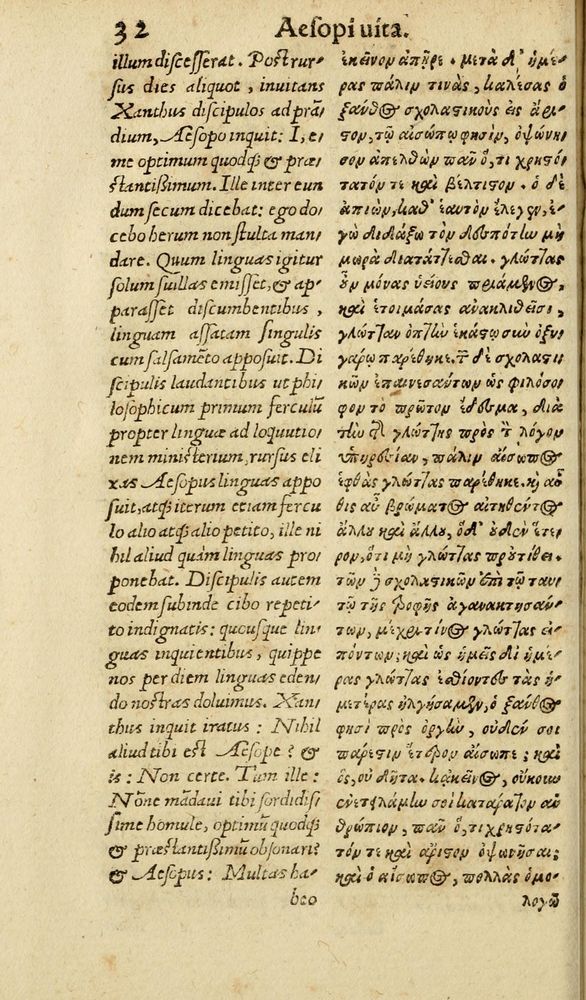 32 Aesopi uita.
illum discesserat. Postrur-
sus dies aliquot, inuitans
Xanthus discipulos ad prā-
dium, Aesopo inquit: I, e-
me optimum quodq; & præ-
stantißimum. Ille inter eun
dum secum dicebat: ego do-
cebo herum non stulta man-
dare. Quum linguas igitur
solum suillas emisset, & ap-
parasset discumbentibus,
linguam assatam singulis
cum salsamēto apposuit. Di
scipulis laudantibus ut phi-
losophicum primum ferculū
propter linguæ ad loquutio-
nem ministerium, rursus eli
xas Aesopus linguas appo
suit, atq; iterum etiam fercu
lo alio atq; alio petito, ille ni
hil aliud quàm linguas pro-
ponebat. Discipulis autem
eodem subinde cibo repeti-
to indignatis: quousque lin-
guas inquientibus, quippe
nos per diem linguas eden-
do nostras doluimus. Xan-
thus inquit iratus: Nihil
aliud tibi est Aesope? &
is: Non certe. Tum ille:
Nōne mādaui tibi sordidis-
sime homule, optimū quodq;
& præstantißimū obsonari?
& Aesopus: Multas ha-
beo
ἐκεῖνον ἀπῆρε. μετὰ δ' ἡμέ-
ρας πάλιν τινὰς, καλέσας ὁ
ξανθος σχολαστικοὺς εἰς ἄρι-
στον, τῷ αἰσώπῳ φησὶν, ὀψώνη-
σον ἀπελθὼν πᾶν ὅ, τι χρηστό-
τατόν τε καὶ βέλτιστον. ὁ δὲ
ἀπιὼν, καθ' ἑαυτὸν ἔλεγεν, ἐ-
γὼ διδάξω τὸν δεσπότην μὴ
μωρὰ διατάττεσθαι. γλώττας
οὖν μόνας ὑείους πριάμενος,
καὶ ἑτοιμάσας ἀνακλιθεῖσι,
γλῶτταν ὀπτὴν ἑκάστῳ σὺν ὀξυ-
γάρῳ παρέθηκε. τῶν δὲ σχολαστι-
κῶν ἐπαινεσάντων ὡς φιλόσο-
φον τὸ πρῶτον ἔδεσμα, διὰ
τὴν τῆς γλώττης πρὸς τὸν λόγον
ὑπηρεσίαν, πάλιν αἴσωπος
ἑφθὰς γλώττας παρέθηκε. καὶ αὖ
θις αὖ βρώματος αἰτηθέντος
ἄλλου καὶ ἄλλου, ὁ δ' οὐδὲν ἕτε-
ρον, ὅτι μὴ γλώττας προὐτίθει.
τῶν δὲ σχολαστικῶν ἐπὶ τῷ ταυ-
τῷ τῆς τροφῆς ἀγανακτησάν-
των, μέχρι τίνος γλώττας εἰ-
πόντων; καὶ ὡς ἡμεῖς δι' ἡμέ-
ρας γλώττας ἐσθίοντες τὰς ἡ-
μετέρας ἠλγήσαμεν, ὁ ξανθος
φησὶ πρὸς ὀργὴν, οὐδέν σοι
πάρεστιν ἕτερον αἴσωπε; καὶ
ὃς, οὐ δῆτα. κἀκεῖνος, οὐκουν
ἐνετειλάμην σοι κατάρατον ἀν
θρώπιον, πᾶν ὅ, τι χρηστότα
τόν τε καὶ ἄριστον ὀψωνῆσαι;
καὶ ὁ αἴσωπος, πολλὰς ὁμο-
λογῶ